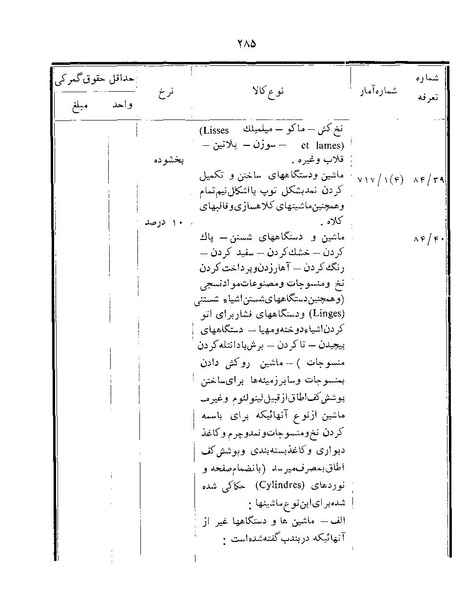 ۲۸۵
شماره تعرفه
شماره آمار
نوع کالا
نرخ
حداقل حقوق گمرکی
واحد
مبلغ
نخ کش – ماکو – میلمیلک (Lisses
et lames) – سوزن – پلاتین –
قلاب وغیره .
بخشوده
۸۴/۳۹
۷۱۷/۱(۴)
ماشین ودستگاههای ساختن و تکمیل
کردن نمدبشکل توپ یااشکل نیم تمام
وهمچنین ماشینهای کلاهسازی و قالبهای
کلاه .
۱۰ درصد
۸۴/۴۰
ماشین و دستگاههای شستن – پاك
کردن – خشك کردن – سفید کردن –
رنگ کردن – آهارزدن وپرداخت کردن
نخ ومنسوجات ومصنوعات موادنسجی
(وهمچنین دستگاههای شستن اشیاء شستنی
(Linges) ودستگاههای فشاربرای اتو
کردن اشیاء دوخته ومهیا – دستگاههای
پیچیدن – تاکردن – برش یادانتله کردن
منسوجات ) – ماشین روکش دادن
بمنسوجات وسایرزمینه‌ها برای ساختن
پوشش کف اطاق از قبیل لینولئوم وغیره
ماشین ازنوع آنهائیکه برای باسمه
کردن نخ ومنسوجات ونمدوچرم وکاغذ
دیواری وکاغذبسته‌بندی وپوشش کف
اطاق بمصرف میرسد (بانضمام صفحه و
نوردهای (Cylindres) حکاکی شده
شده برای این نوع ماشینها :
الف – ماشین ها و دستگاهها غیر از
آنهائیکه دربندب گفته شده است :